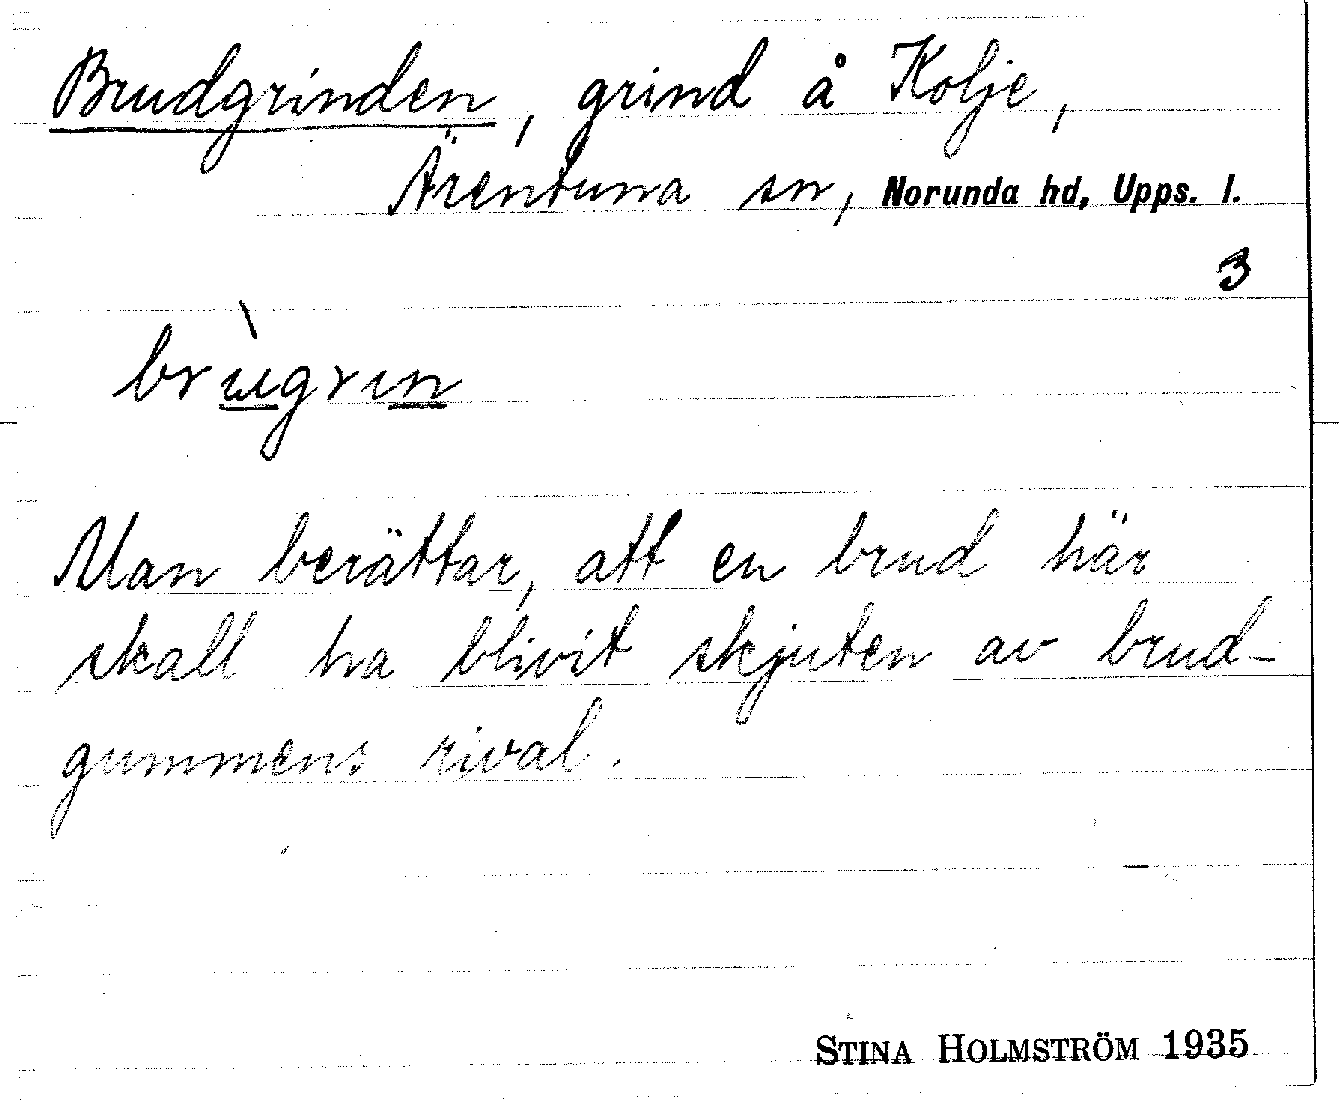 Brudgrinden, grind å Kolje,
Ärentuna sn, Norunda hd, Upps. l.
3
brùgrin
Man berättar, att en brud här
skall ha blivit skjuten av brud-
gummens rival.
STINA HOLMSTRÖM 1935